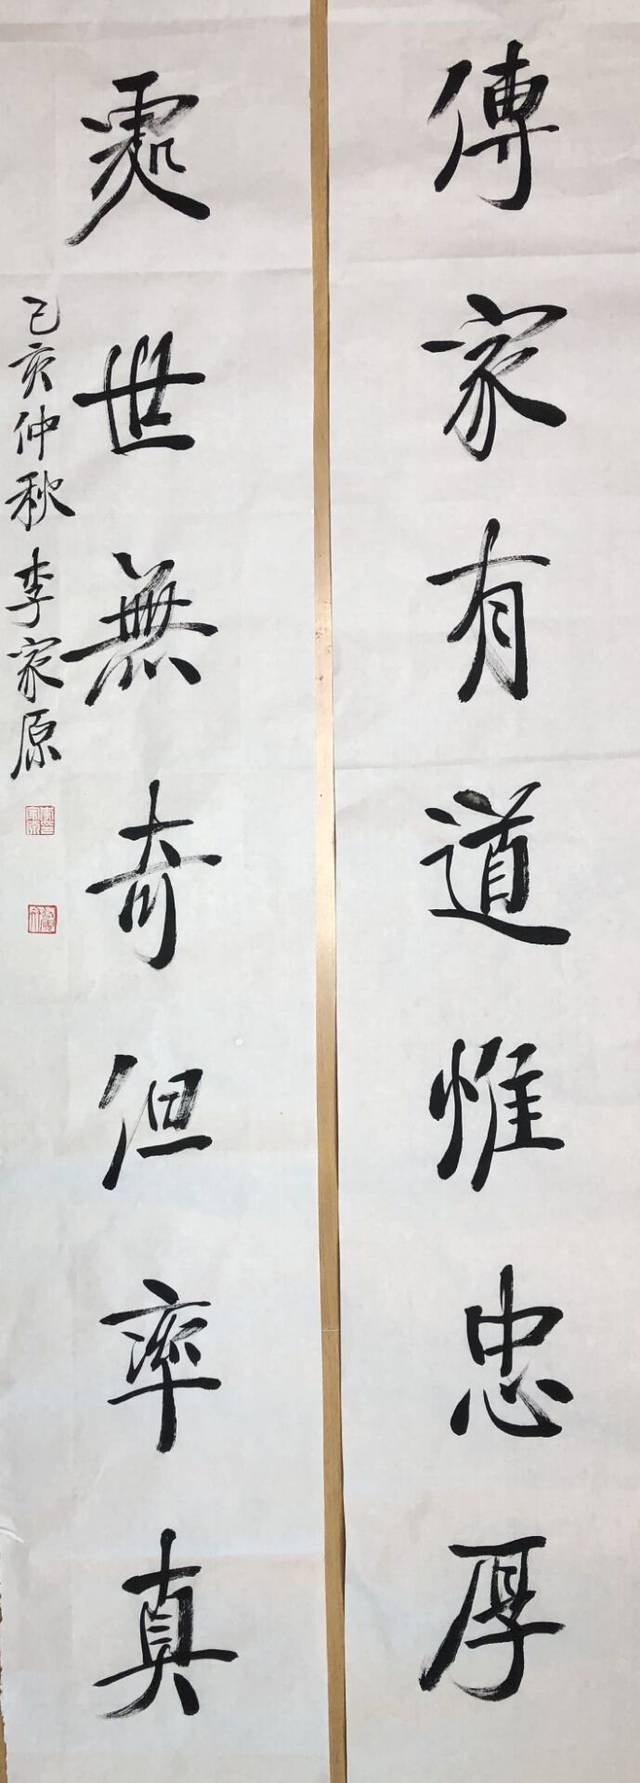 傳家有道惟忠厚
處世無奇但率真
己亥仲秋李家原